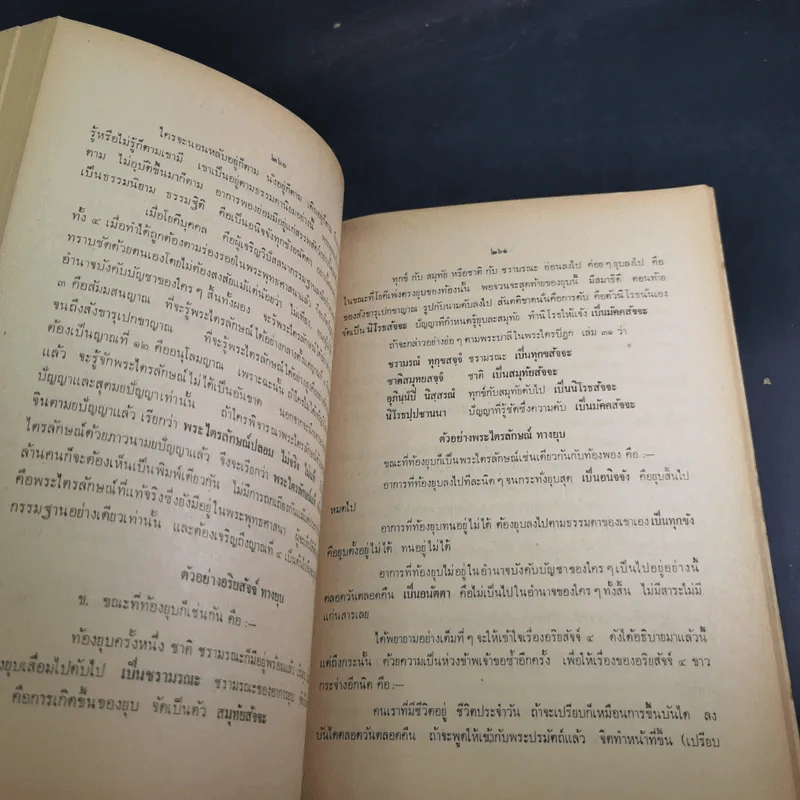 ๒๖๐
ใครจะนอนหลับอยู่ก็ตาม นั่งอยู่ก็ตาม เดินอยู่ก็ตาม
รู้หรือไม่รู้ก็ตามเขามี เขาเป็นอยู่ตามธรรมดานิยมอย่างนี้
ตาม ไม่อุบัติขึ้นมาก็ตาม อาการพองย่อมมีอยู่แก่สรรพสัตว์
เป็นธรรมนิยาม ธรรมฐิติ คือเป็นอนิจจังทุกขังอนัตตา
เมื่อโยคีบุคคล คือผู้เจริญวิปัสสนากรรมฐาน
ทั้ง ๔ เมื่อทำได้ถูกต้องตามร่องรอยในพระพุทธศาสนาแล้ว
ทราบชัดด้วยตนเองโดยไม่ต้องสงสัยแม้แต่น้อยว่า ไม่เที่ยง
อำนาจบังคับบัญชาของใครๆ สิ้นทั้งผอง จะรู้พระไตรลักษณ์
๓ คือสัมมสนญาณ ที่จะรู้พระไตรลักษณ์ได้อย่างกลางตั้งแต่
จนถึงสังขารุเปกขาญาณ ที่จะรู้พระไตรลักษณ์ได้อย่าง
ต้องเป็นญาณที่ ๑๒ คืออนุโลมญาณ เพราะฉะนั้น
แล้ว จะรู้จักพระไตรลักษณ์ไม่ได้เป็นอันขาด นอกจาก
ปัญญาและสุตมยปัญญาเท่านั้น ถ้าใครพิจารณาพระไตร
จินตามยปัญญาแล้ว เรียกว่า พระไตรลักษณ์ปลอม ไม่จริง ไม่แท้
ไตรลักษณ์ด้วยภาวนามยปัญญาแล้ว จึงจะเรียกว่า พระไตรลักษณ์
ล้านคนก็จะต้องเห็นเป็นพิมพ์เดียวกัน ไม่มีการถกเถียงกัน
คือพระไตรลักษณ์ที่แท้จริงซึ่งยังมีอยู่ในพระพุทธศาสนา
กรรมฐานอย่างเดียวเท่านั้น และต้องเจริญถึงญาณที่ ๔
ตัวอย่างอริยสัจจ์ ทางยุบ
ข. ขณะที่ท้องยุบก็เช่นกัน คือ :—
ท้องยุบครั้งหนึ่ง ชาติ ชรามรณะก็มีอยู่พร้อมแล้ว
ยุบเสื่อมไปดับไป เป็นชรามรณะ ชรามรณะของอาการยุบ
คือการเกิดขึ้นของยุบ จัดเป็นตัว สมุทัยสัจจะ
๒๖๑
ทุกข์ กับ สมุทัย หรือชาติ กับ ชรามรณะ อ่อนลงไป ค่อยๆ ยุบลงไป คือ
ในขณะที่โยคีเพ่งตรงยุบของท้องนั้น พอจวนจะสุดท้ายของยุบนี้ มีสมาธิดี ตอนท้าย
ของสังขารุเปกขาญาณ รูปกับนามดับลงไป สันตติขาดนั่นคือการดับ คือตัวนิโรธนั่นเอง
จัดเป็น นิโรธสัจจะ ปัญญาที่กำหนดรู้ยุบละสมุทัย ทำนิโรธให้แจ้ง เป็นมัคคสัจจะ
ถ้าจะกล่าวอย่างย่อๆ ตามพระบาลีในพระไตรปิฎก เล่ม ๓๑ ว่า
ชรามรณํ ทุกฺขสจฺจํ ชรามรณะ เป็นทุกขสัจจะ
ชาติสมุทยสจฺจํ ชาติ เป็นสมุทัยสัจจะ
อุภินฺนํปิ นิสฺสรณํ ทุกข์กับสมุทัยดับไป เป็นนิโรธสัจจะ
นิโรธปฺปชานนา ปัญญาที่รู้ชัดซึ่งความดับ เป็นมัคคสัจจะ
ตัวอย่างพระไตรลักษณ์ ทางยุบ
ขณะที่ท้องยุบก็เป็นพระไตรลักษณ์เช่นเดียวกันกับท้องพอง คือ :—
อาการที่ท้องยุบลงไปทีละนิดๆ จนกระทั่งยุบสุด เป็นอนิจจัง คือยุบสิ้นไป
หมดไป
อาการที่ท้องยุบทนอยู่ไม่ได้ ต้องยุบลงไปตามธรรมดาของเขาเอง เป็นทุกขัง
คือยุบตั้งอยู่ไม่ได้ ทนอยู่ไม่ได้
อาการที่ท้องยุบไม่อยู่ในอำนาจบังคับบัญชาของใครๆ เป็นไปอยู่อย่างนี้
ตลอดวันตลอดคืน เป็นอนัตตา คือไม่เป็นไปในอำนาจของใครๆ ทั้งสิ้น ไม่มีสาระไม่มี
แก่นสารเลย
ได้พยายามอย่างเต็มที่ๆ จะให้เข้าใจเรื่องอริยสัจจ์ ๔ ดังได้อธิบายมาแล้วนี้
แต่ถึงกระนั้น ด้วยความเป็นห่วงข้าพเจ้าขอซ้ำอีกครั้ง เพื่อให้เรื่องของอริยสัจจ์ ๔ ขาว
กระจ่างอีกนิด คือ :—
คนเราที่มีชีวิตอยู่ ชีวิตประจำวัน ถ้าจะเปรียบก็เหมือนการขึ้นบันได ลง
บันไดตลอดวันตลอดคืน ถ้าจะพูดให้เข้ากับพระปรมัตถ์แล้ว จิตทำหน้าที่ขึ้น (เปรียบ